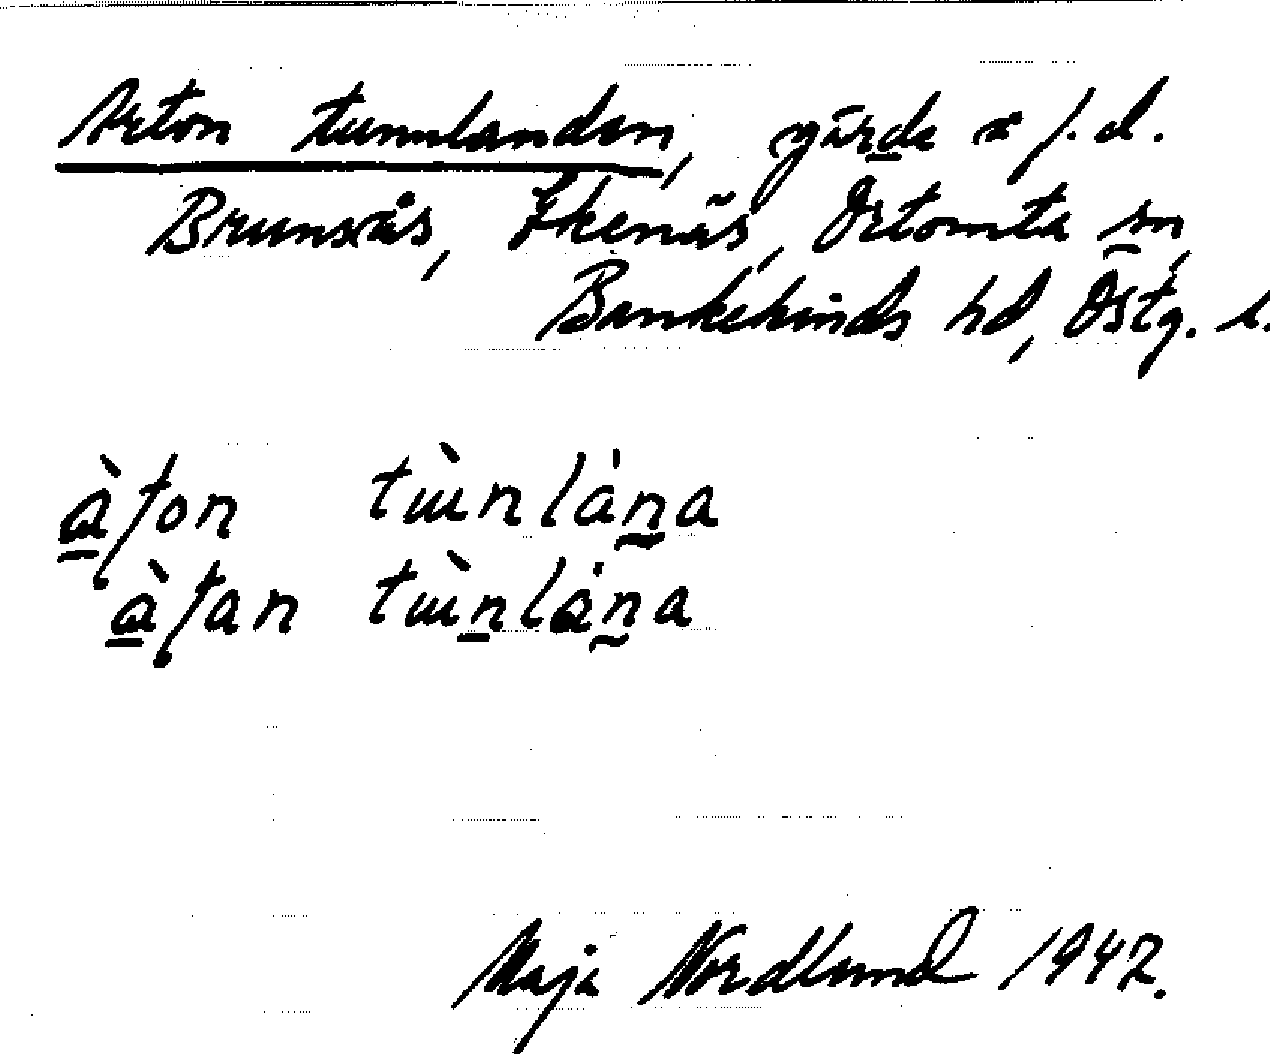 Arton tunnlanden, gärde å f. d.
Brunsås, Ekenäs, Örtomta sn,
Bankekinds hd, Östg. l.
àʈon tɯ̀nlána
àʈan tɯ̀nlána
Maja Nordlund 1947.